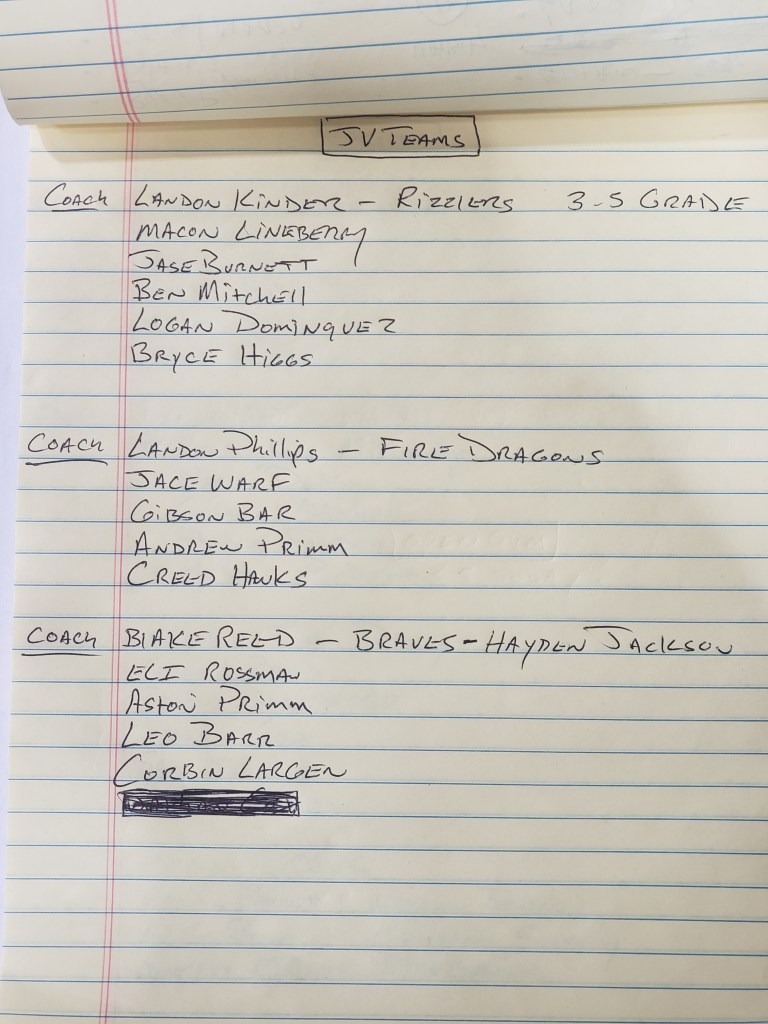 JV TEAMS
COACH LANDON KINDER - RIZZLERS 3-5 GRADE
MACON LINEBERRY
JASE BURNETT
BEN MITCHELL
LOGAN DOMINQUEZ
BRYCE HIGGS
COACH LANDON Phillips - FIRE DRAGONS
JACE WARF
GIBSON BAR
ANDREW PRIMM
CREED HAWKS
COACH BLAKE REED - BRAVES - HAYDEN JACKSON
ELI ROSSMAN
ASTON PRIMM
LEO BARR
CORBIN LARGEN